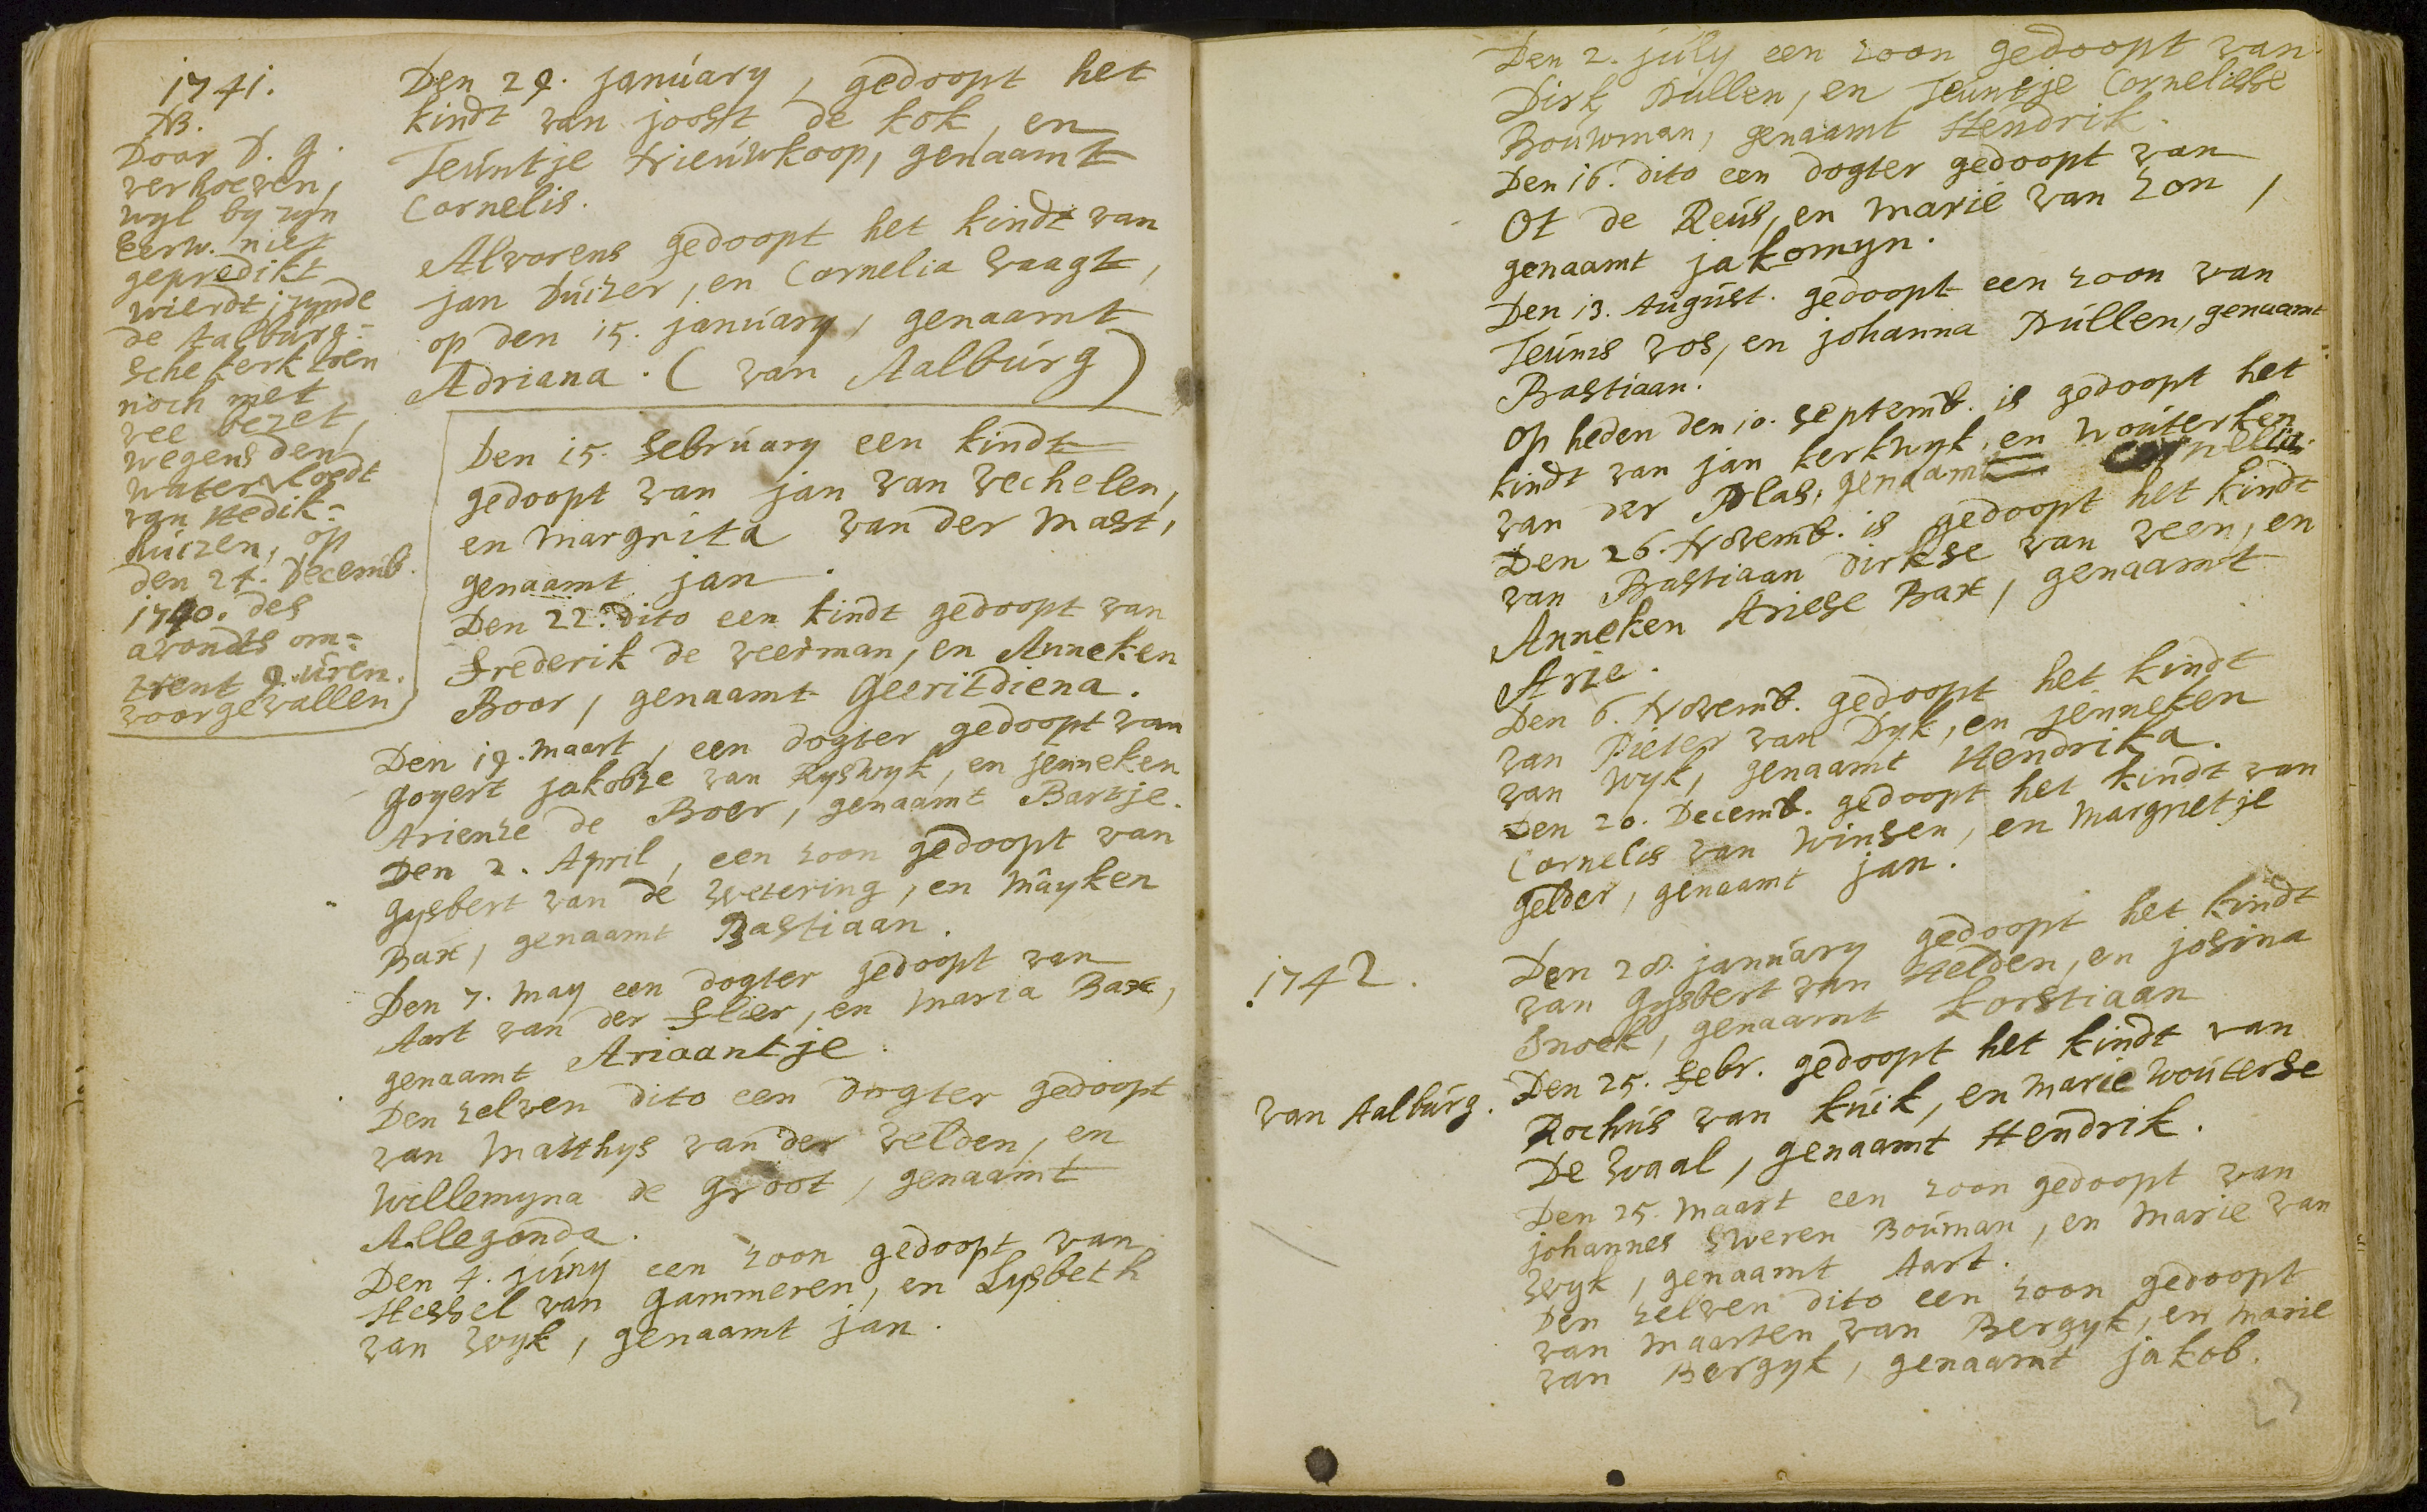 1741.
NB.
Door D. G.
verhoeven,
wyl by zyn
Eerw. niet
gepredikt
wierdt; zynde
de Aalburg-
sche kerk toen
noch met
vee bezet,
wegens den
watervloedt
van Hedik-
huizen, op
den 24. Decemb.
1740. des
avondts om-
trent 9 uren.
voorgevallen
Den 29. january, gedoopt het
kindt van joost de kok, en
Teuntje Nieuwkoop, genaamt
Cornelis.
Alvorens gedoopt het kindt van
jan Duizer, en Cornelia Vaagt,
op den 15. january, genaamt
Adriana. (van Aalburg)
Den 15. february een kindt
gedoopt van jan van Vechelen,
en Margrita van der Mast,
genaamt jan.
Den 22. dito een kindt gedoopt van
frederik de veerman, en Anneken
Boor, genaamt Geeritdiena.
Den 19. Maart, een dogter gedoopt van
Goyert jakobze van Ryswyk, en jenneken
Arienze de Boer, genaamt Bartje.
Den 2. April, een zoon gedoopt van
Gysbert van de Wetering, en Mayken
Bax, genaamt Bastiaan.
Den 7. May een dogter gedoopt van
Aart van der flier, en Maria Bax,
genaamt Ariaantje.
Den zelven dito een dogter gedoopt
van Matthys van der Velden, en
Willemyna de Groot, genaamt
Allegonda.
Den 4. juny een zoon gedoopt van
Hessel van Gammeren, en Lysbeth
van Wyk, genaamt jan.
Den 2. july een zoon gedoopt van
Dirk Dullen, en Teuntje Cornelisse
Bouwman, genaamt Hendrik.
Den 16. dito een dogter gedoopt van
Ot de Reus, en Marie van Zon,
genaamt jakomyn.
Den 13. August. gedoopt een zoon van
Teunis Vos, en johanna Dullen, genaamt
Bastiaan.
Op heden den 10. Septemb. is gedoopt het
kindt van jan kerkwyk, en Wouterken
van der Plas, genaamt Cornellia.
Den 26. Novemb. is gedoopt het kindt
van Bastiaan Dirkse van Veen, en
Anneken Ariese Bax, genaamt
Arie.
Den 6. Novemb. gedoopt het kindt
van Pieter van Dyk, en jenneken
van Wyk, genaamt Hendrika.
Den 20. Decemb. gedoopt het kindt van
Cornelis van Winsen, en Margrietje
Gelder, genaamt jan.
1742.
Den 28. january gedoopt het kindt
van Gysbert van Helden, en josina
Snoek, genaamt korstiaan
van Aalburg.
Den 25. febr. gedoopt het kindt van
Rochus van kuik, en Marie Wouterse
De Waal, genaamt Hendrik.
Den 25. Maart een zoon gedoopt van
johannes Sweren Bouman, en Marie van
Wyk, genaamt Aart.
Den zelven dito een zoon gedoopt
van Maarten van Bergyk, en Marie
van Bergyk, genaamt jakob.